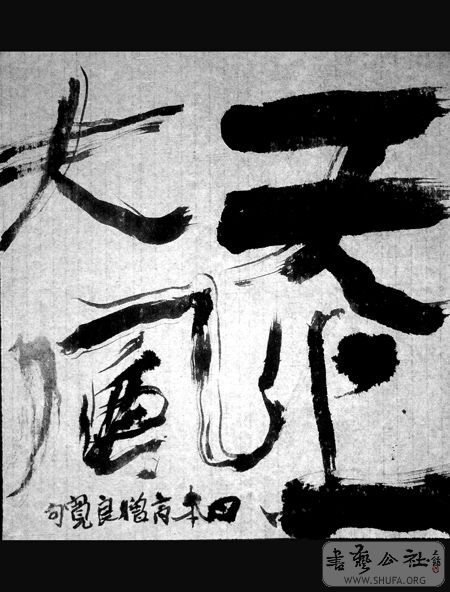 天上
大風
日本高僧良寬句
書藝公社
WWW.SHUFA.ORG